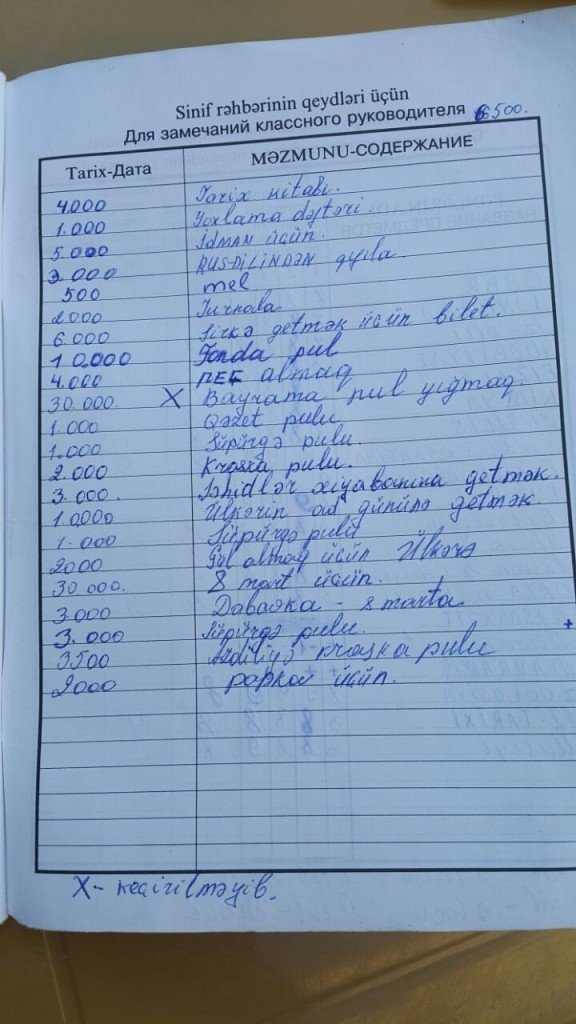 Sinif rəhbərinin qeydləri üçün
Для замечаний классного руководителя 6500.
Tarix-Дата MƏZMUNU-СОДЕРЖАНИЕ
4.000 Tarix kitabı.
1.000 Yoxlama dəftəri
5.000 İdman üçün.
3.000 RUS-DİLİNDƏN
500 mel
2000 Jurnala
6.000 Sirkə getmək üçün bilet.
10.000 Fonda pul
4.000 almaq
30.000. X Bayrama pul yığmaq.
1.000 Qəzet pulu
1.000 Süpürgə pulu.
2.000 Kraska pulu.
3.000. Şəhidlər xiyabanına getmək.
10.000 Ülkərin ad gününə getmək.
1.000 Süpürgə pulu
2000 Gül almaq üçün Ülkərə
30.000. 8 mart üçün.
3.000 Dabavka - 8 marta
3.000 Süpürgə pulu. +
3500 kraska pulu
2000 papka üçün.
X- keçirilməyib.